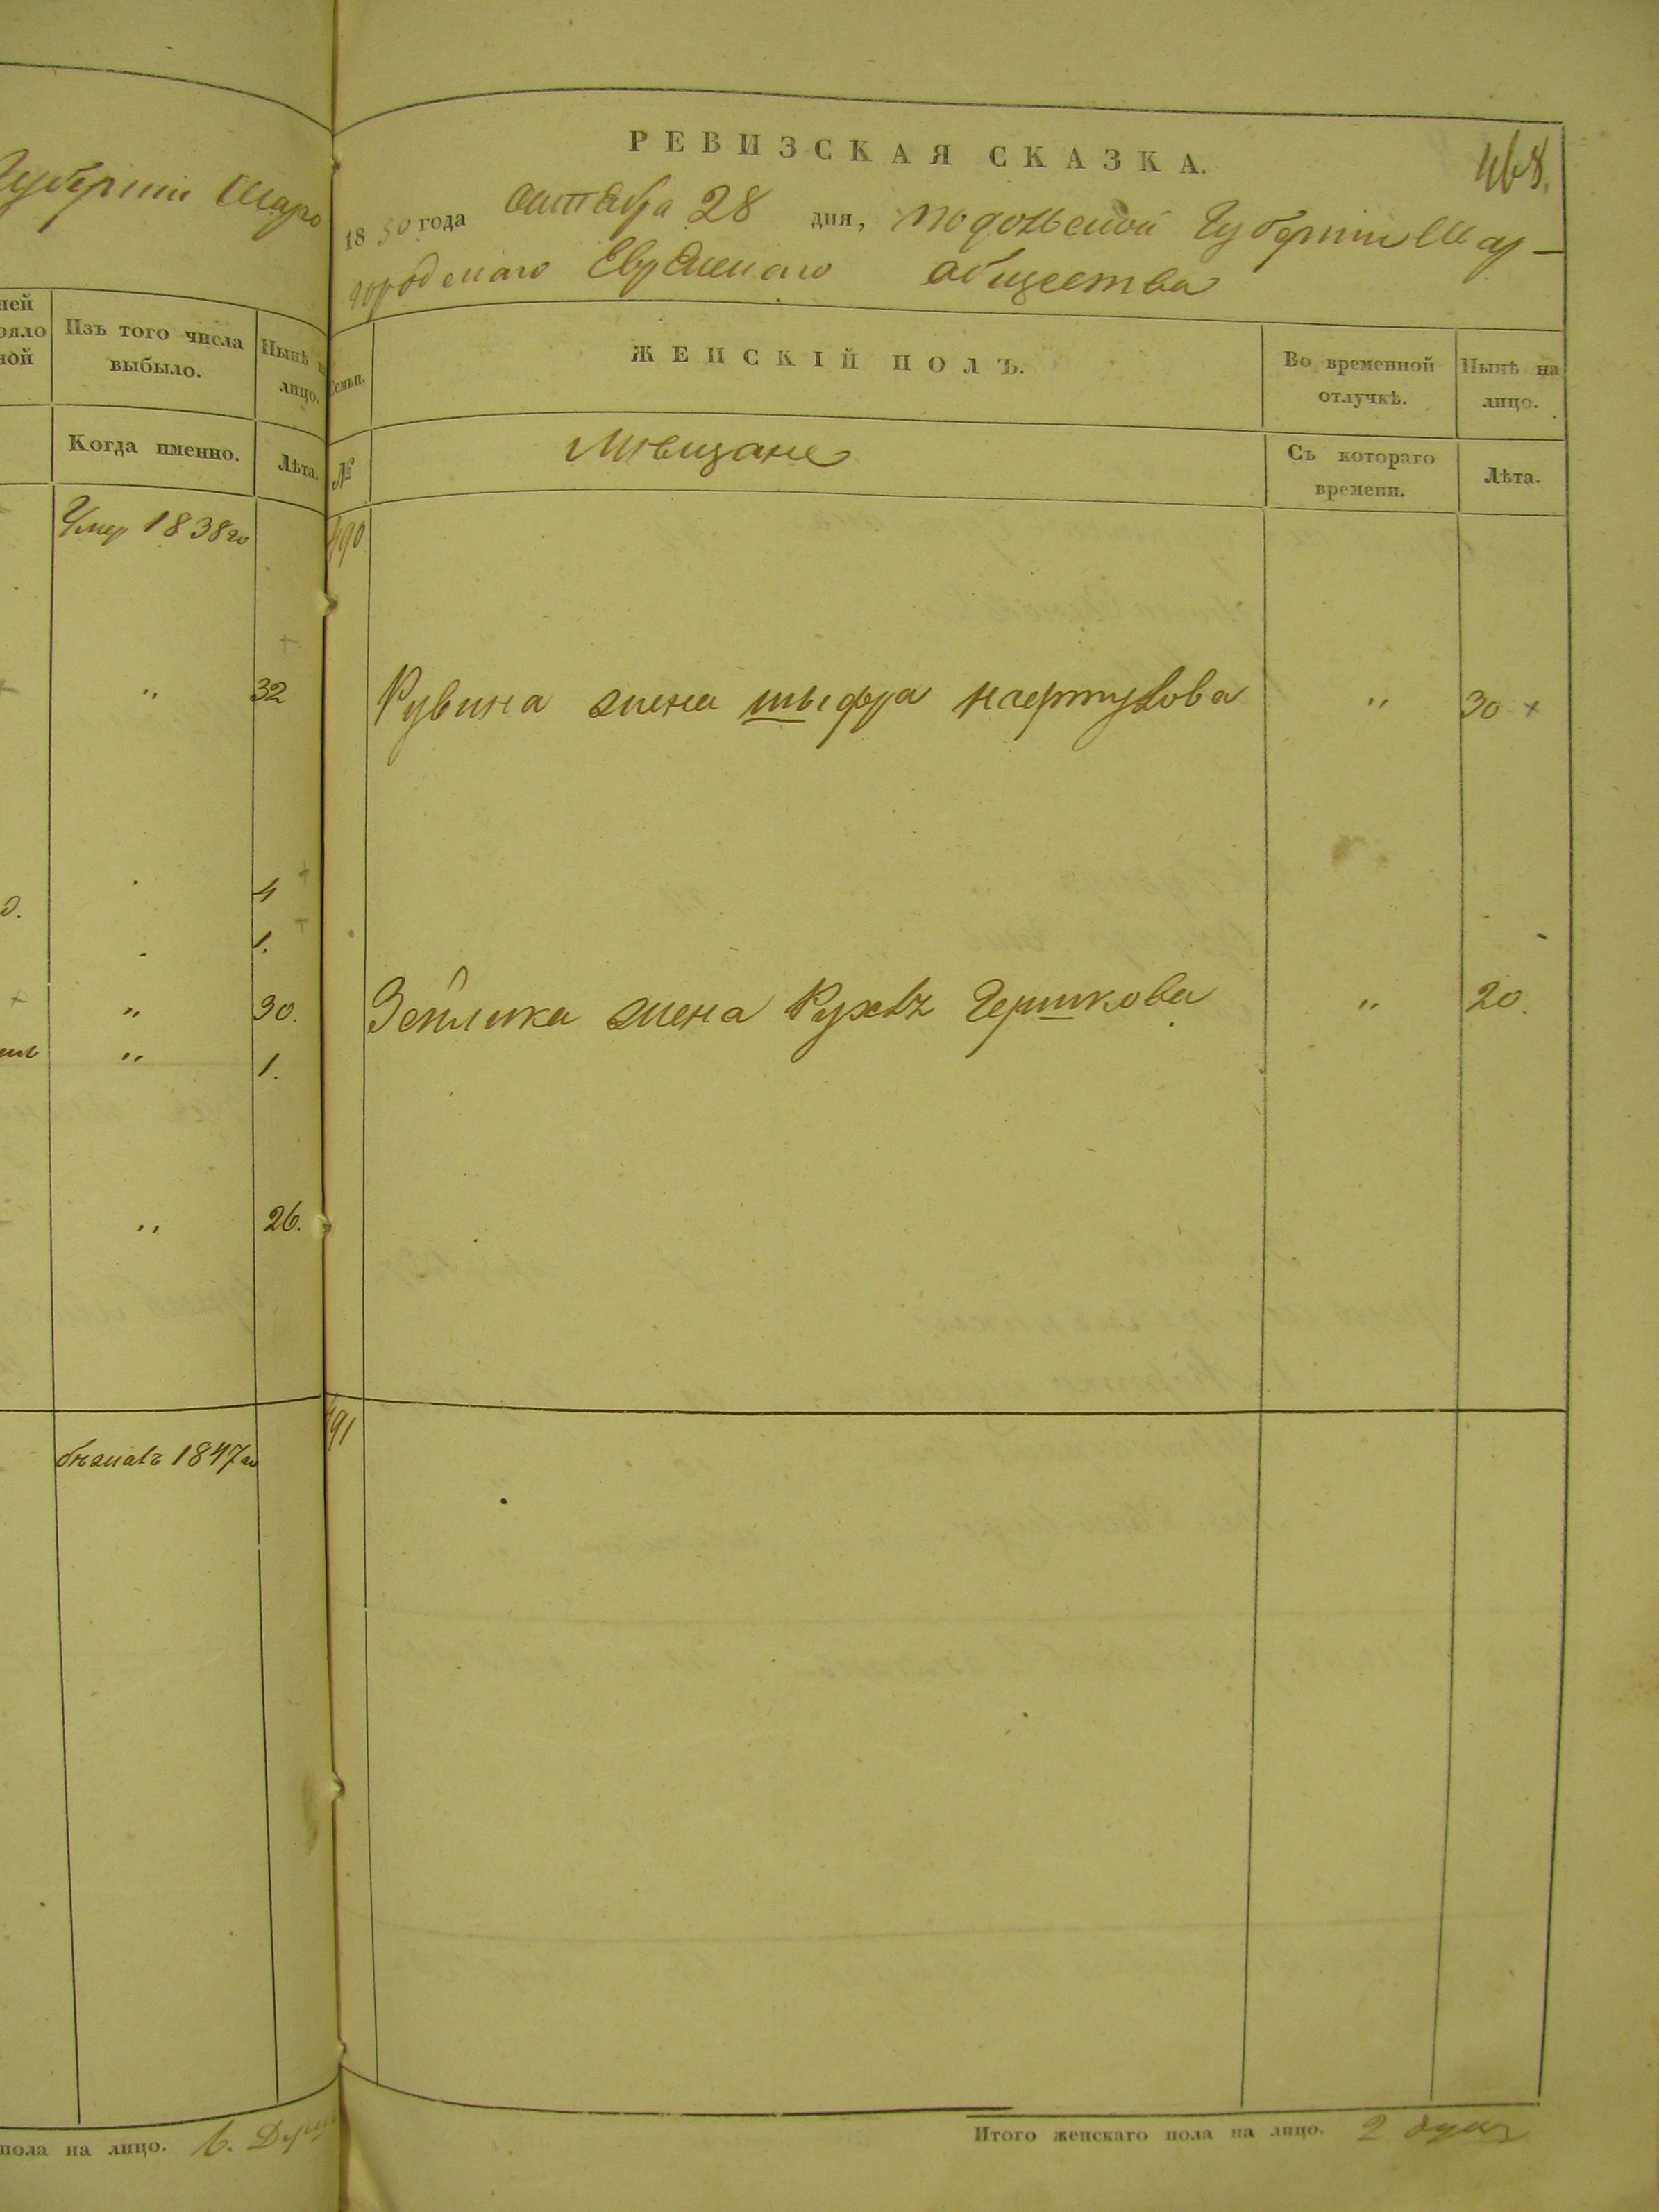 Губерніи Шаро
ней
ояло
ной
Изъ того числа выбыло.
Нынѣ на лицо.
Когда именно.
Лѣта.
Умер 1838 го
" 32
4
1.
" 30.
" 1.
" 26.
бѣжалъ 1847 го
пола на лицо. 6.
РЕВИЗСКАЯ СКАЗКА.
468.
1850 года Октября 28 дня, Подольской Губерніи Шар-
городскаго Еврейскаго общества
Семьи.
ЖЕНСКІЙ ПОЛЪ.
Во временной отлучкѣ.
Нынѣ на лицо.
№
Мѣщане
Съ котораго времени.
Лѣта.
490
Рувина жена Шыфра " 30
Зейлика жена Рухль Гершкова " 20.
491
Итого женскаго пола на лицо. 2 души